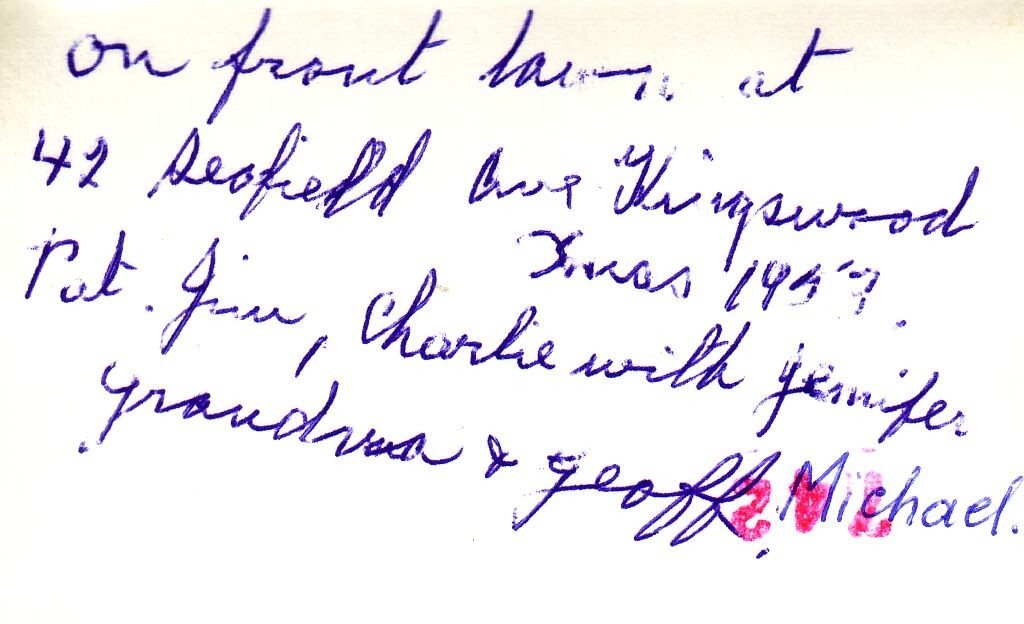 on front lawn at
42 Seafield Ave Kingswood
Xmas 1957.
Pat. Jim, Charlie with Jennifer
Grandma & Geoff. Michael.